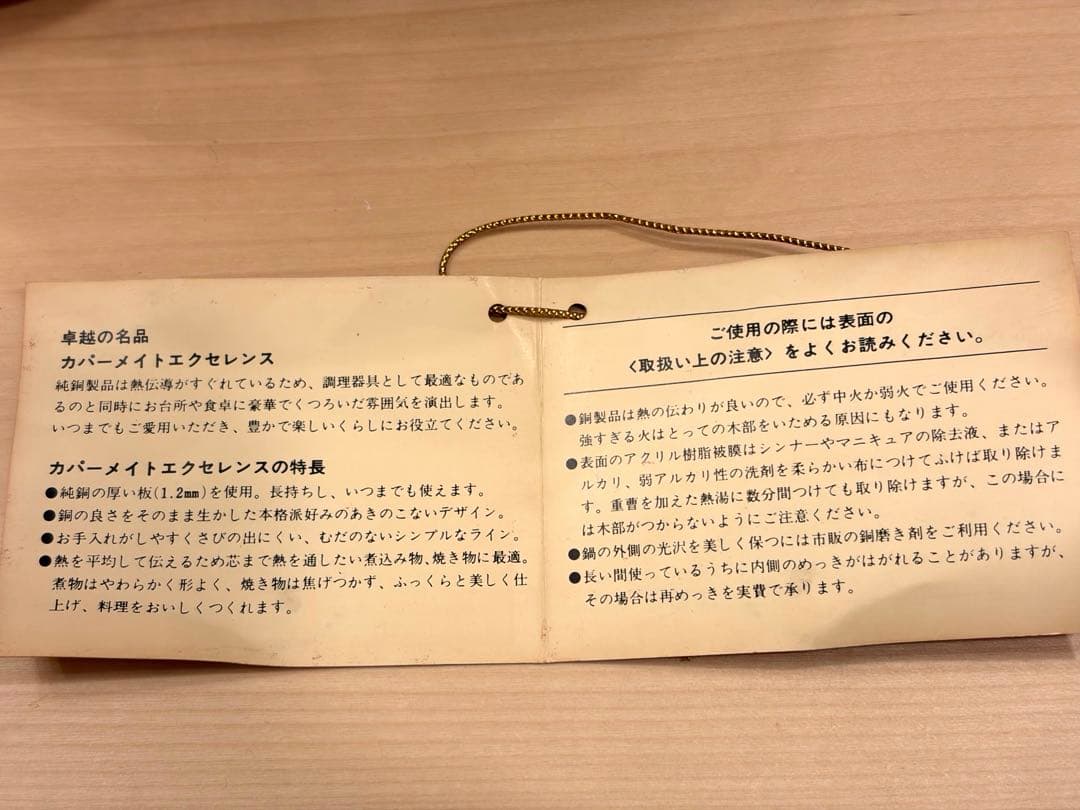 卓越の名品
カパーメイトエクセレンス
純銅製品は熱伝導がすぐれているため、調理器具として最適なものであ
るのと同時にお台所や食卓に豪華でくつろいだ雰囲気を演出します。
いつまでもご愛用いただき、豊かで楽しいくらしにお役立てください。
カパーメイトエクセレンスの特長
●純銅の厚い板(1.2mm)を使用。長持ちし、いつまでも使えます。
●銅の良さをそのまま生かした本格派好みのあきのこないデザイン。
●お手入れがしやすくさびの出にくい、むだのないシンプルなライン。
●熱を平均して伝えるため芯まで熱を通したい煮込み物、焼き物に最適。
煮物はやわらかく形よく、焼き物は焦げつかず、ふっくらと美しく仕
上げ、料理をおいしくつくれます。
ご使用の際には表面の
〈取扱い上の注意〉をよくお読みください。
●銅製品は熱の伝わりが良いので、必ず中火か弱火でご使用ください。
強すぎる火はとっての木部をいためる原因にもなります。
●表面のアクリル樹脂被膜はシンナーやマニキュアの除去液、またはア
ルカリ、弱アルカリ性の洗剤を柔らかい布につけてふけば取り除けま
す。重曹を加えた熱湯に数分間つけても取り除けますが、この場合に
は木部がつからないようにご注意ください。
●鍋の外側の光沢を美しく保つには市販の銅磨き剤をご利用ください。
●長い間使っているうちに内側のめっきがはがれることがありますが、
その場合は再めっきを実費で承ります。